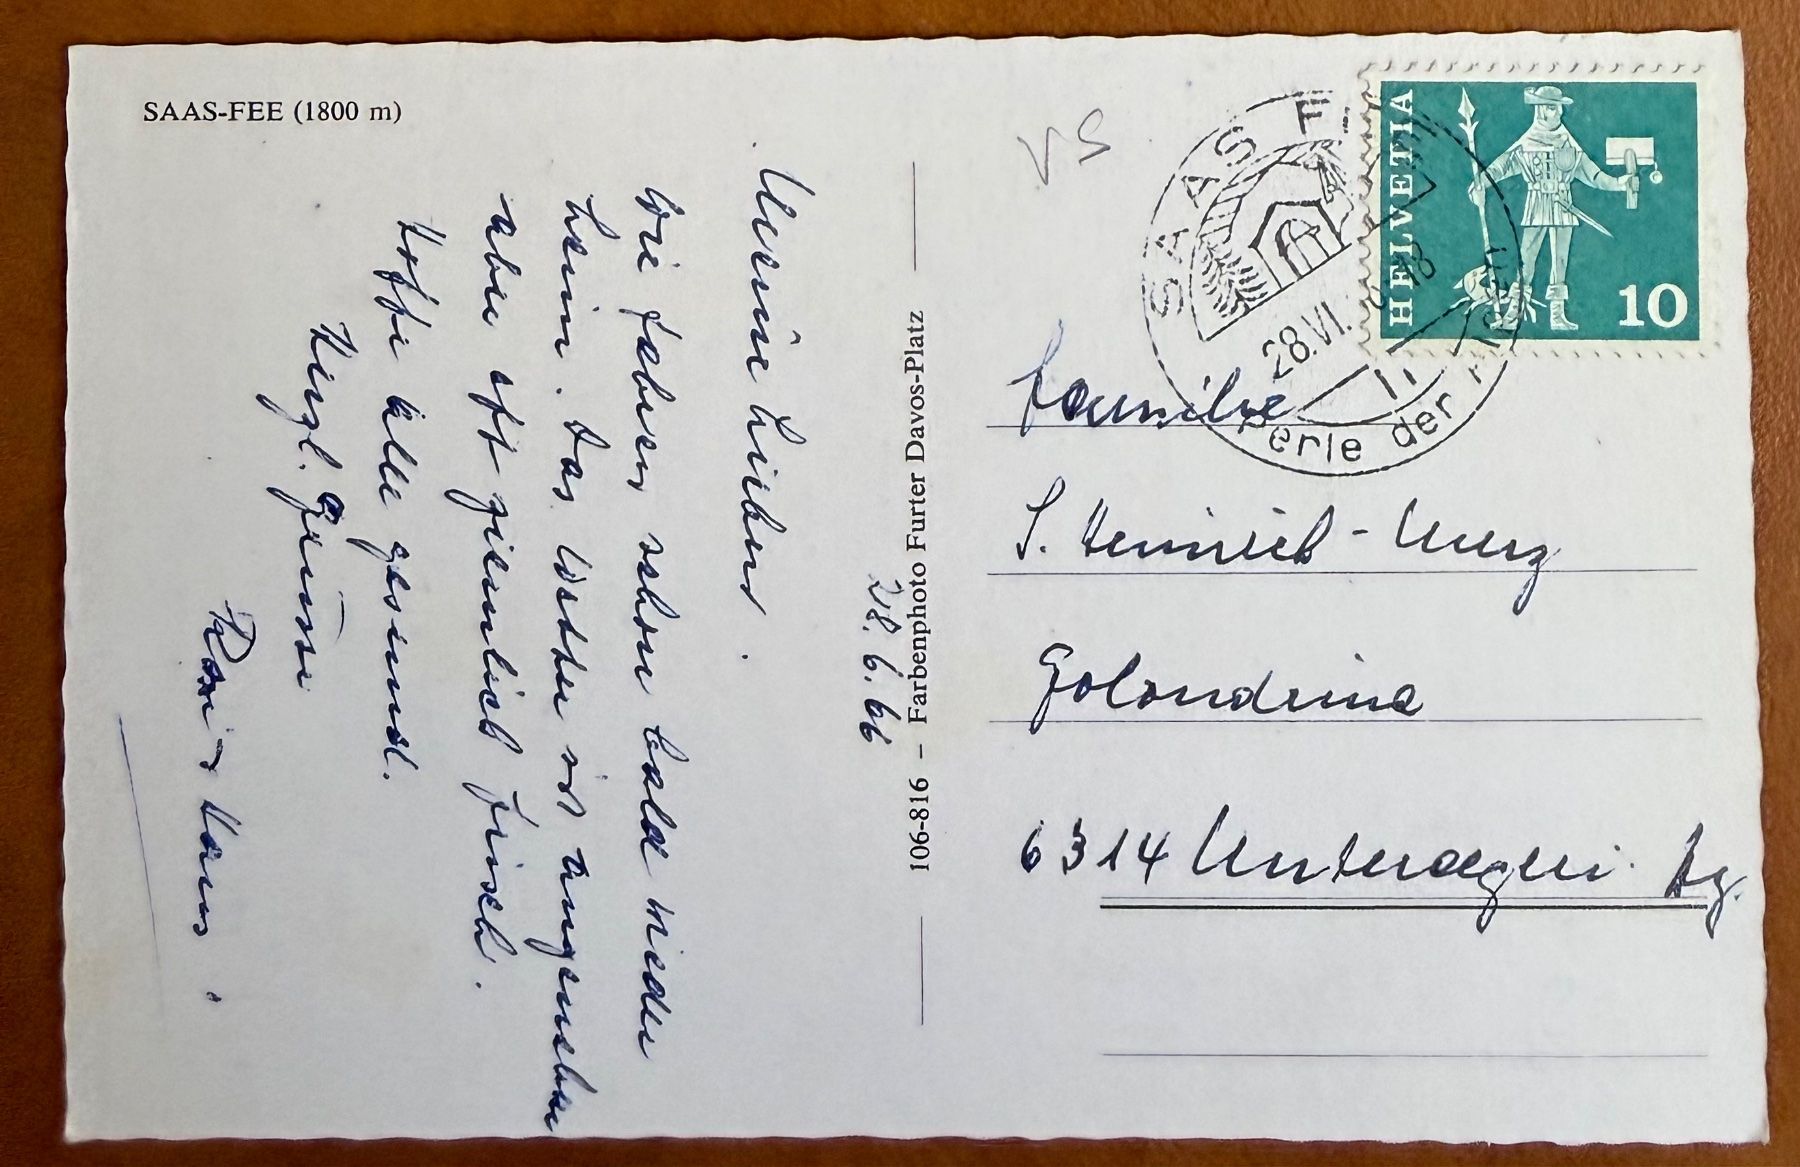 SAAS-FEE (1800 m)
28.6.66
Meine Lieben.
Wir fahren schon bald wieder
heim. Das Wetter ist angenehm
aber oft ziemlich frisch.
Hoffe alle gesund.
Herzl. Grüsse
Rosi + Hans.
106-816 – Farbenphoto Furter Davos-Platz
25
HELVETIA
10
SAAS
28.VI.
18
Perle der
Familie
S. Heinrich-Merz
Golondrina
6314 Unteraegeri Zg.